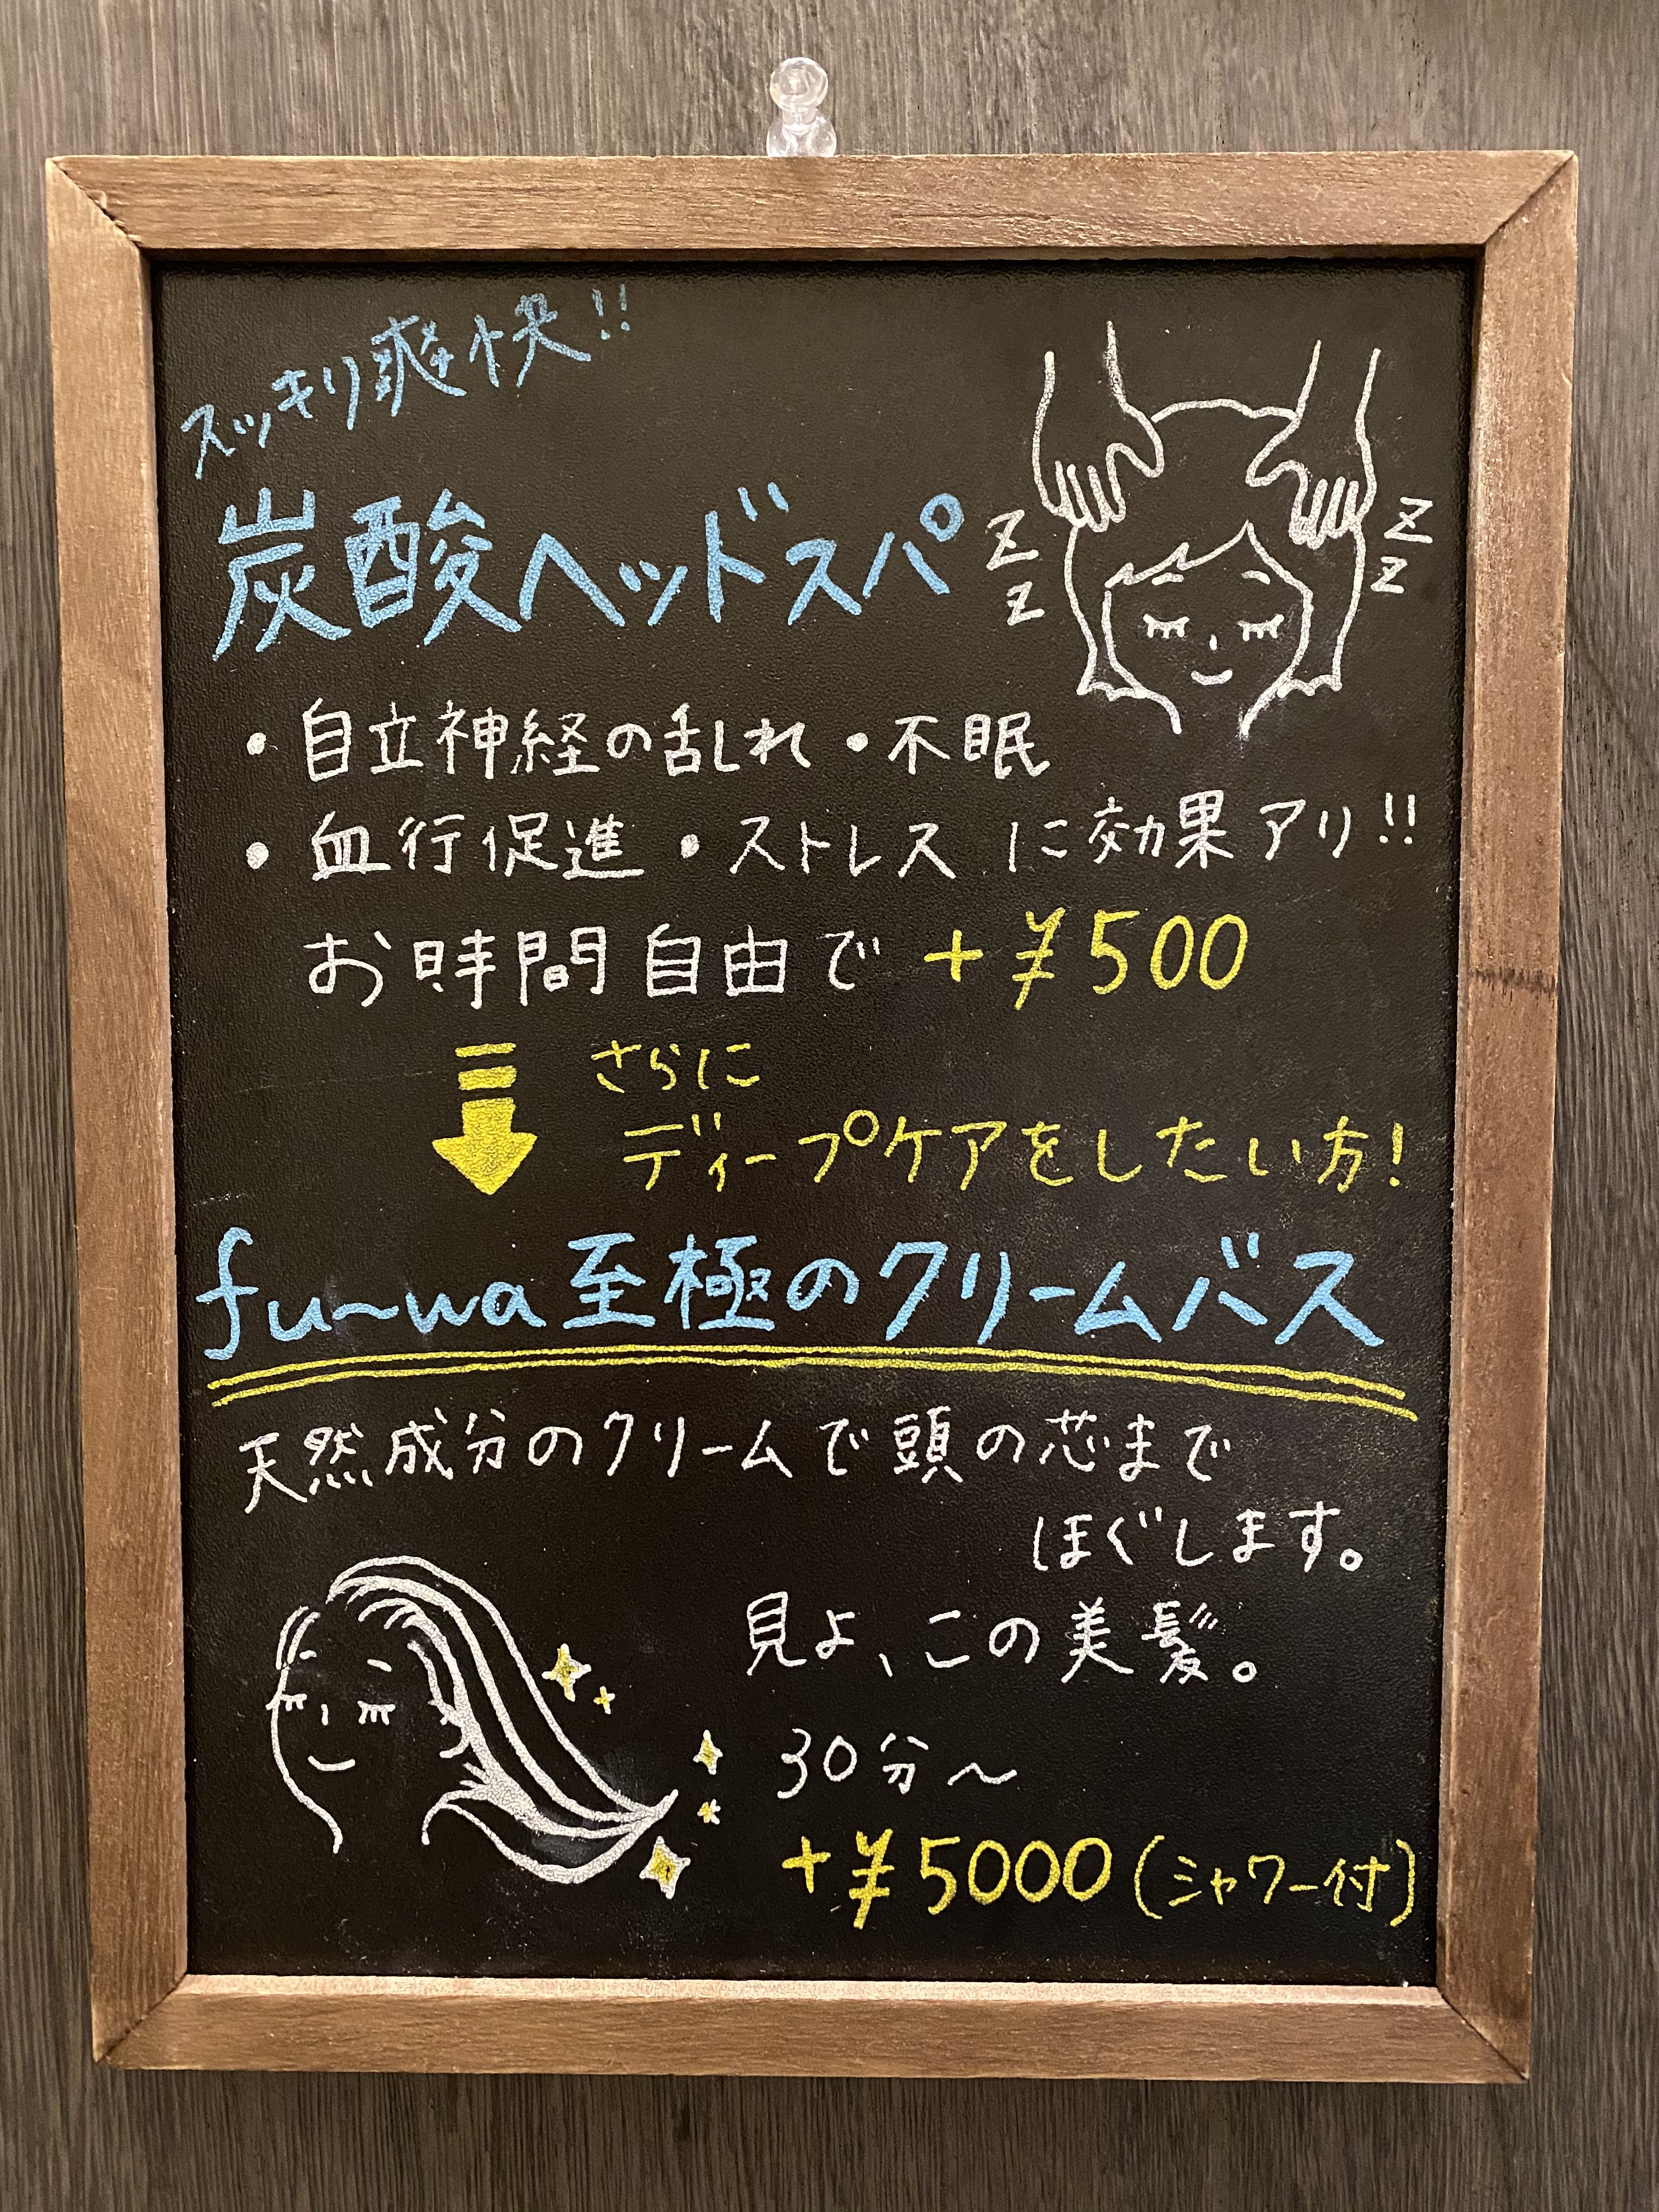 スッキリ爽快!!
炭酸ヘッドスパ
zz
zz
・自立神経の乱れ・不眠
・血行促進・ストレス に効果アリ!!
お時間自由で +¥500
さらに
ディープケアをしたい方!
fu~wa至極のクリームバス
天然成分のクリームで頭の芯まで
ほぐします。
見よ、この美髪。
30分~
+¥5000(シャワー付)